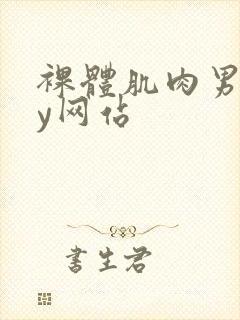 裸體肌肉男
y网佔
書生君